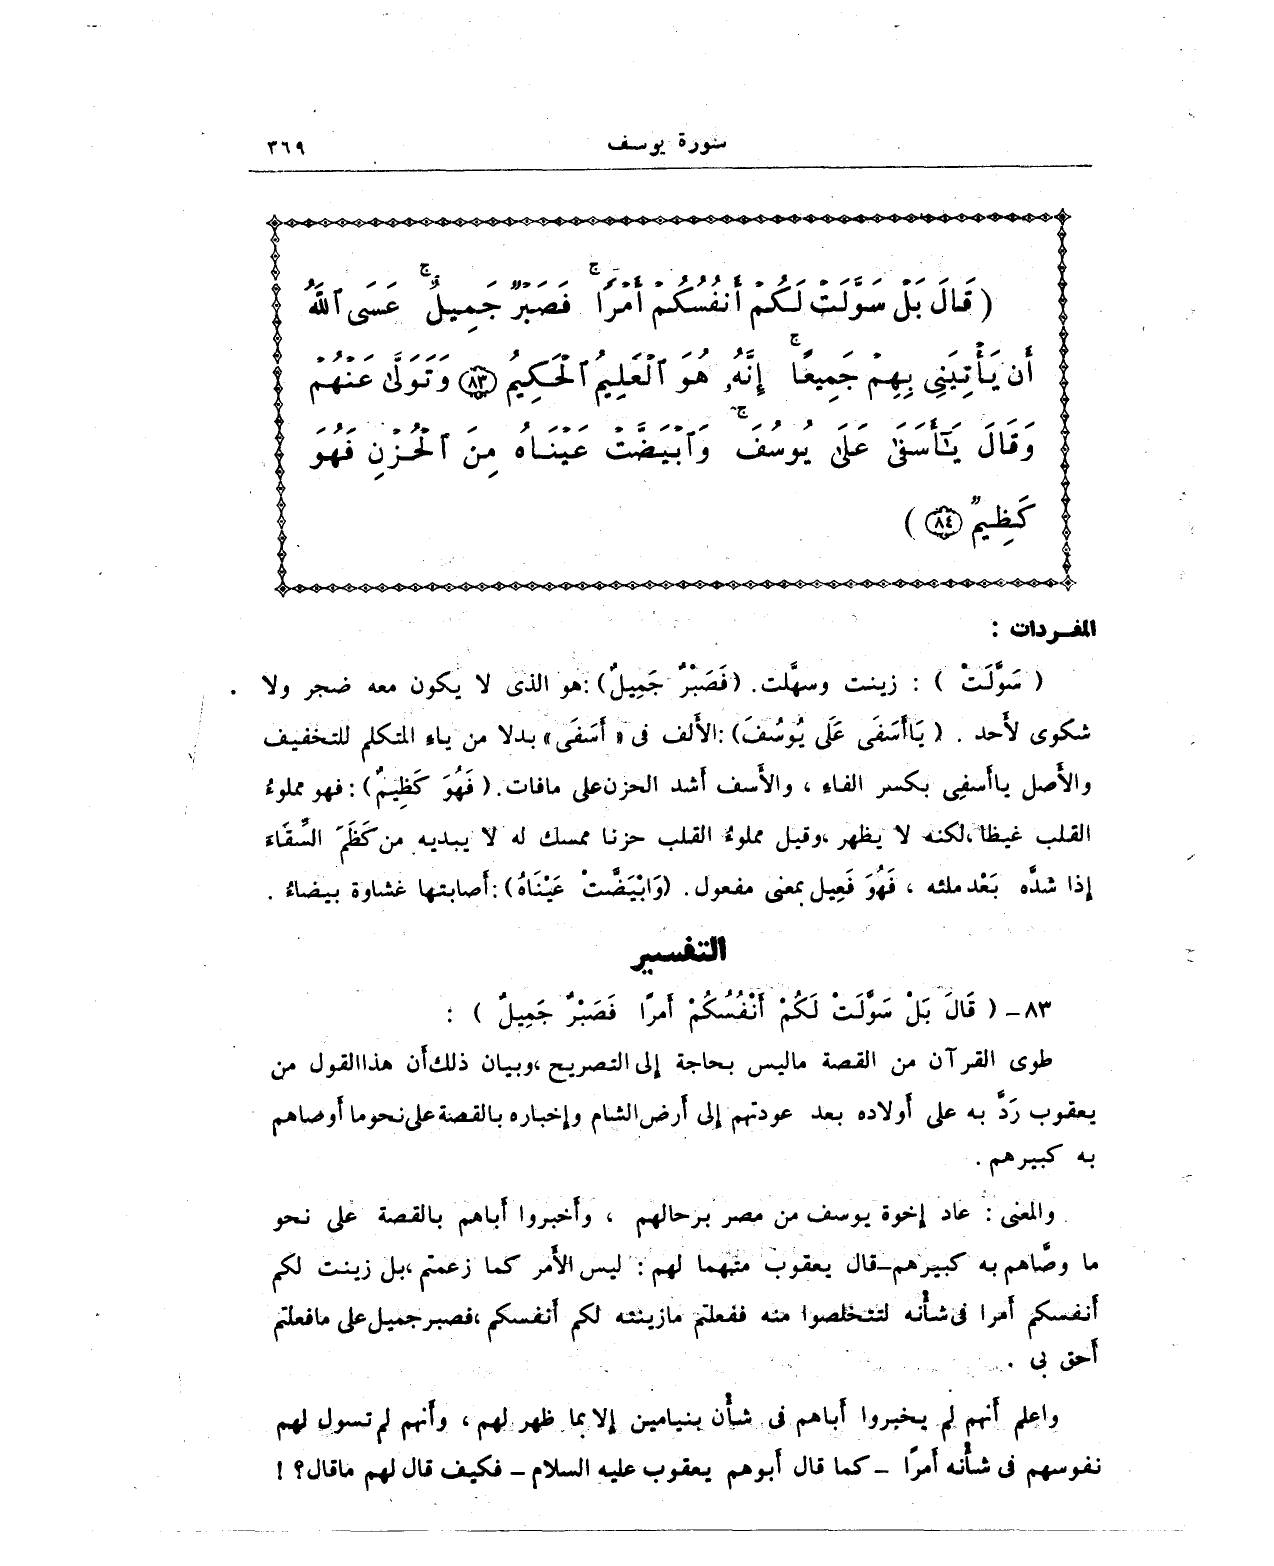 سورة يوسف ٣٦٩
( قَالَ بَلْ سَوَّلَتْ لَكُمْ أَنفُسُكُمْ أَمْرًا ۖ فَصَبْرٌ جَمِيلٌ ۖ عَسَى ٱللَّهُ
أَن يَأْتِيَنِى بِهِمْ جَمِيعًا ۚ إِنَّهُۥ هُوَ ٱلْعَلِيمُ ٱلْحَكِيمُ (٨٣) وَتَوَلَّىٰ عَنْهُمْ
وَقَالَ يَـٰٓأَسَفَىٰ عَلَىٰ يُوسُفَ ۚ وَٱبْيَضَّتْ عَيْنَاهُ مِنَ ٱلْحُزْنِ فَهُوَ
كَظِيمٌ (٨٤) )
المفـردات :
( سَوَّلَتْ ) : زينت وسهَّلت. (فَصَبْرٌ جَمِيلٌ):هو الذى لا يكون معه ضجر ولا
شكوى لأحد . ( يَاأَسَفَى عَلَى يُوسُفَ):الألف فى «أَسَفَى» بدلا من ياء المتكلم للتخفيف
والأصل ياأسفِى بكسر الفاء ، والأسف أشد الحزن على مافات. ( فَهُوَ كَظِيمٌ) : فهو مملوءُ
القلب غيظا ،لكنه لا يظهر ،وقيل مملوءُ القلب حزنا ممسك له لا يبديه من كَظَمَ السِّقَاءَ
إذا شدَّه بَعْد ملئه ، فَهُوَ فَعِيل بمعنى مفعول. (وَابْيَضَّتْ عَيْنَاهُ):أصابتها غشاوة بيضاءُ .
التفسير
٨٣ - ( قَالَ بَلْ سَوَّلَتْ لَكُمْ أَنْفُسُكُمْ أَمرًا فَصَبْرٌ جَمِيلٌ ) :
طوى القرآن من القصة ماليس بحاجة إلى التصريح ،وبيان ذلك أن هذا القول من
يعقوب رَدَّ به على أولاده بعد عودتهم إلى أرض الشام وإخباره بالقصة على نحوما أوصاهم
به كبيرهم .
والمعنى : عاد إخوة يوسف من مصر برحالهم ، وأخبروا أباهم بالقصة على نحو
ما وصَّاهم به كبيرهم–قال يعقوب متهما لهم : ليس الأمر كما زعمتم ،بل زينت لكم
أنفسكم أمرا فى شأنه لتتخلصوا منه ففعلتم مازينته لكم أنفسكم ،فصبر جميل على مافعلتم
أحق بى .
واعلم أنهم لم يخبروا أباهم فى شأن بنيامين إلا بما ظهر لهم ، وأنهم لم تسول لهم
نفوسهم فى شأنه أمرًا – كما قال أبوهم يعقوب عليه السلام – فكيف قال لهم ماقال؟ !